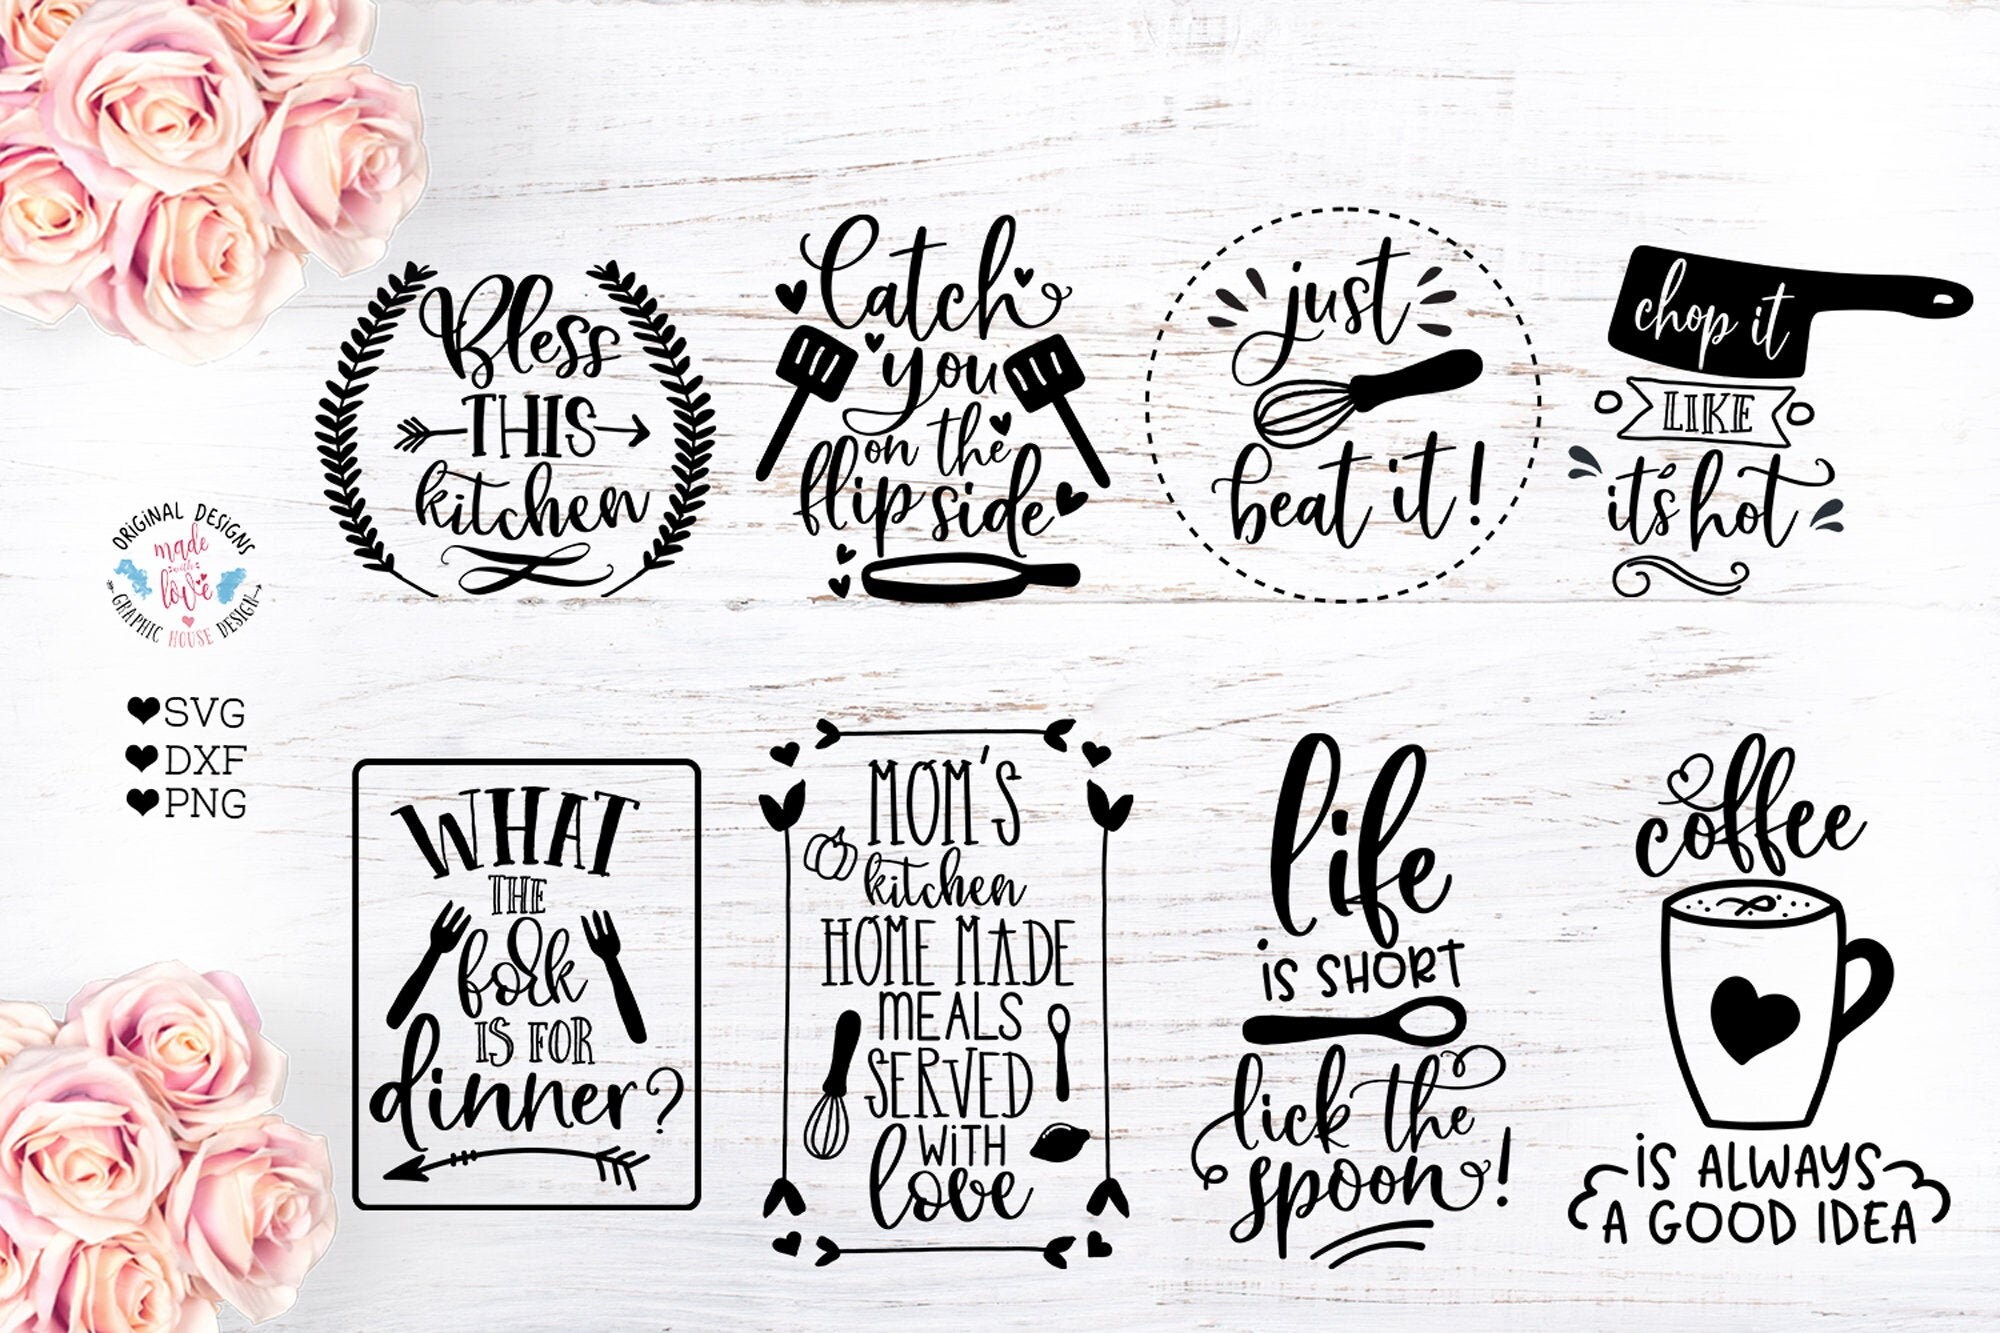 Bless
THIS
kitchen
Catch
you
on the
flip side
just
beat it!
chop it
LIKE
it's hot
ORiGiNAL DESiGNS
made
with
love
GRAPHiC HOUSE DESiGN
SVG
DXF
PNG
WHAT
THE
fork
IS FOR
dinner?
MOM'S
kitchen
HOME MADE
MEALS
SERVED
WiTH
love
life
iS SHORT
lick the
spoon!
coffee
iS ALWAYS
A GOOD IDEA